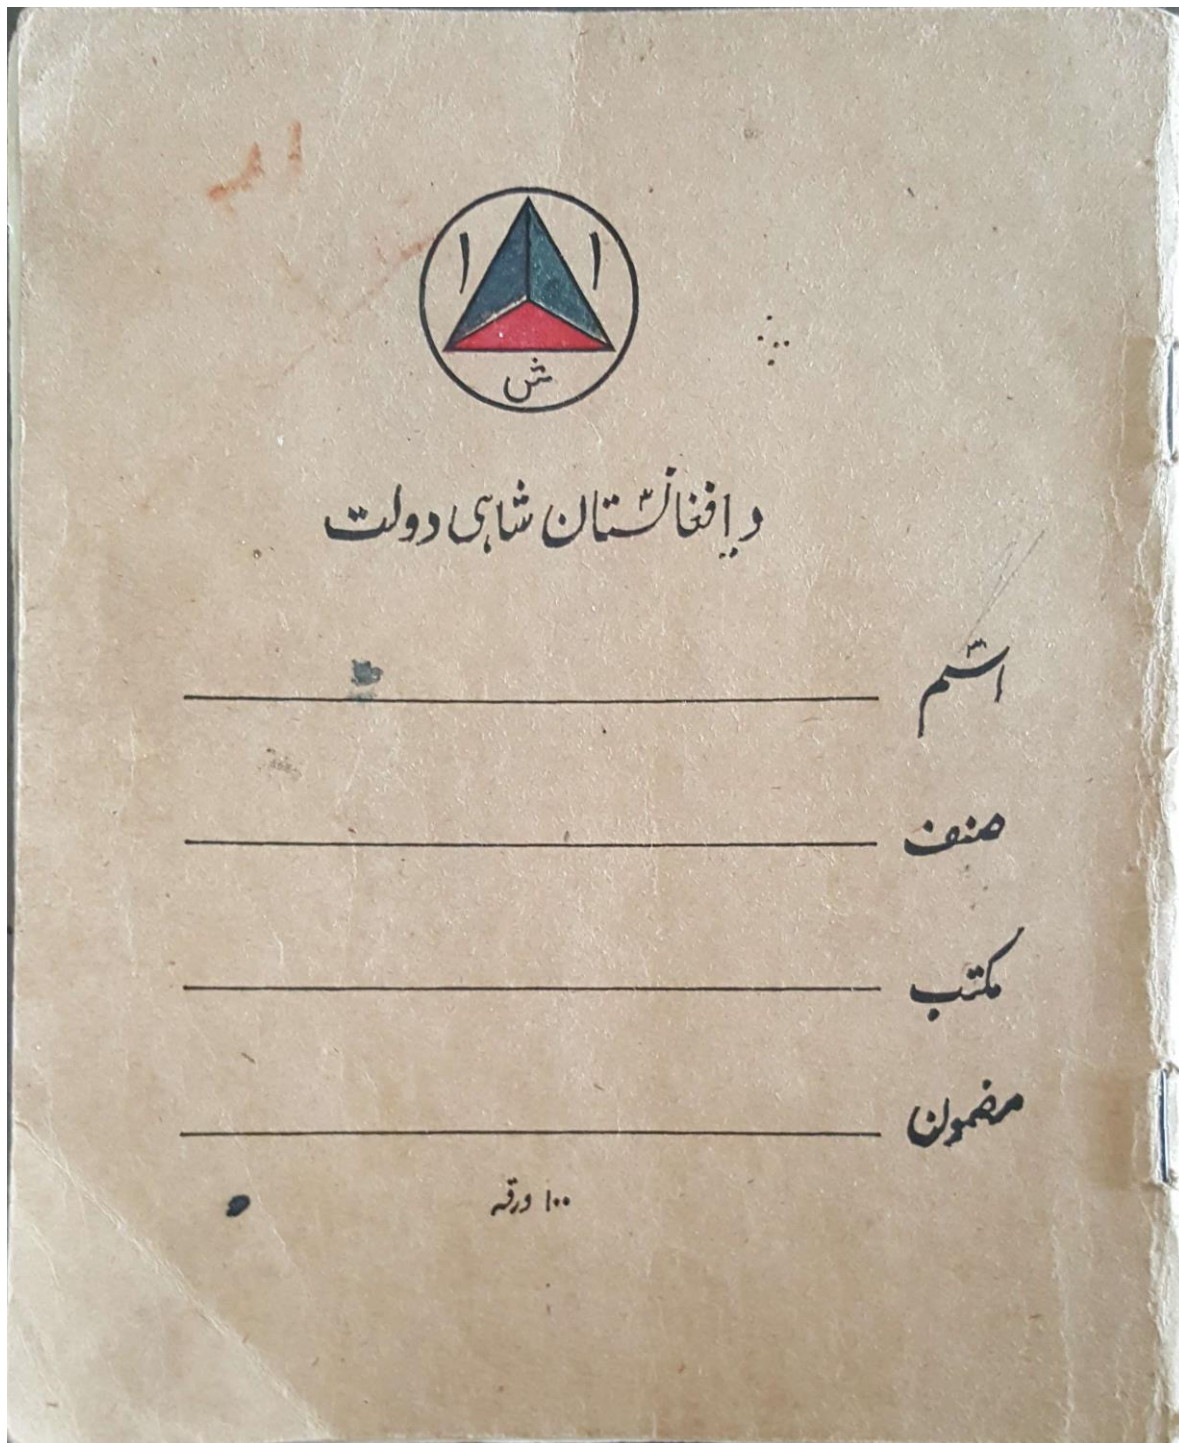 ا ا
ش
د افغانستان شاهی دولت
اسم
صنف
مکتب
مضمون
۱۰۰ ورقه